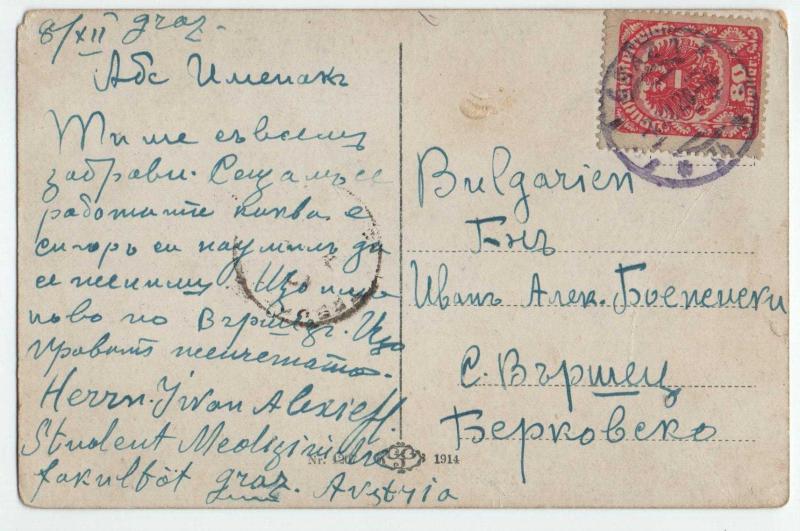 8/XII graz.
Абе Именякъ
Ти ме съвсемъ
забрави. Сещамъ се
работите каква е
сигоръ си наумилъ да
се жениш. Що има
ново по Вършецъ. Що
правятъ женчетата.
Herrn. Ivan Alexieff
Student Medizinische
fakultät graz. Austria
Bulgarien
Бнъ
Иванъ Алек. Боененски
с. Вършец
Берковско
80
1914